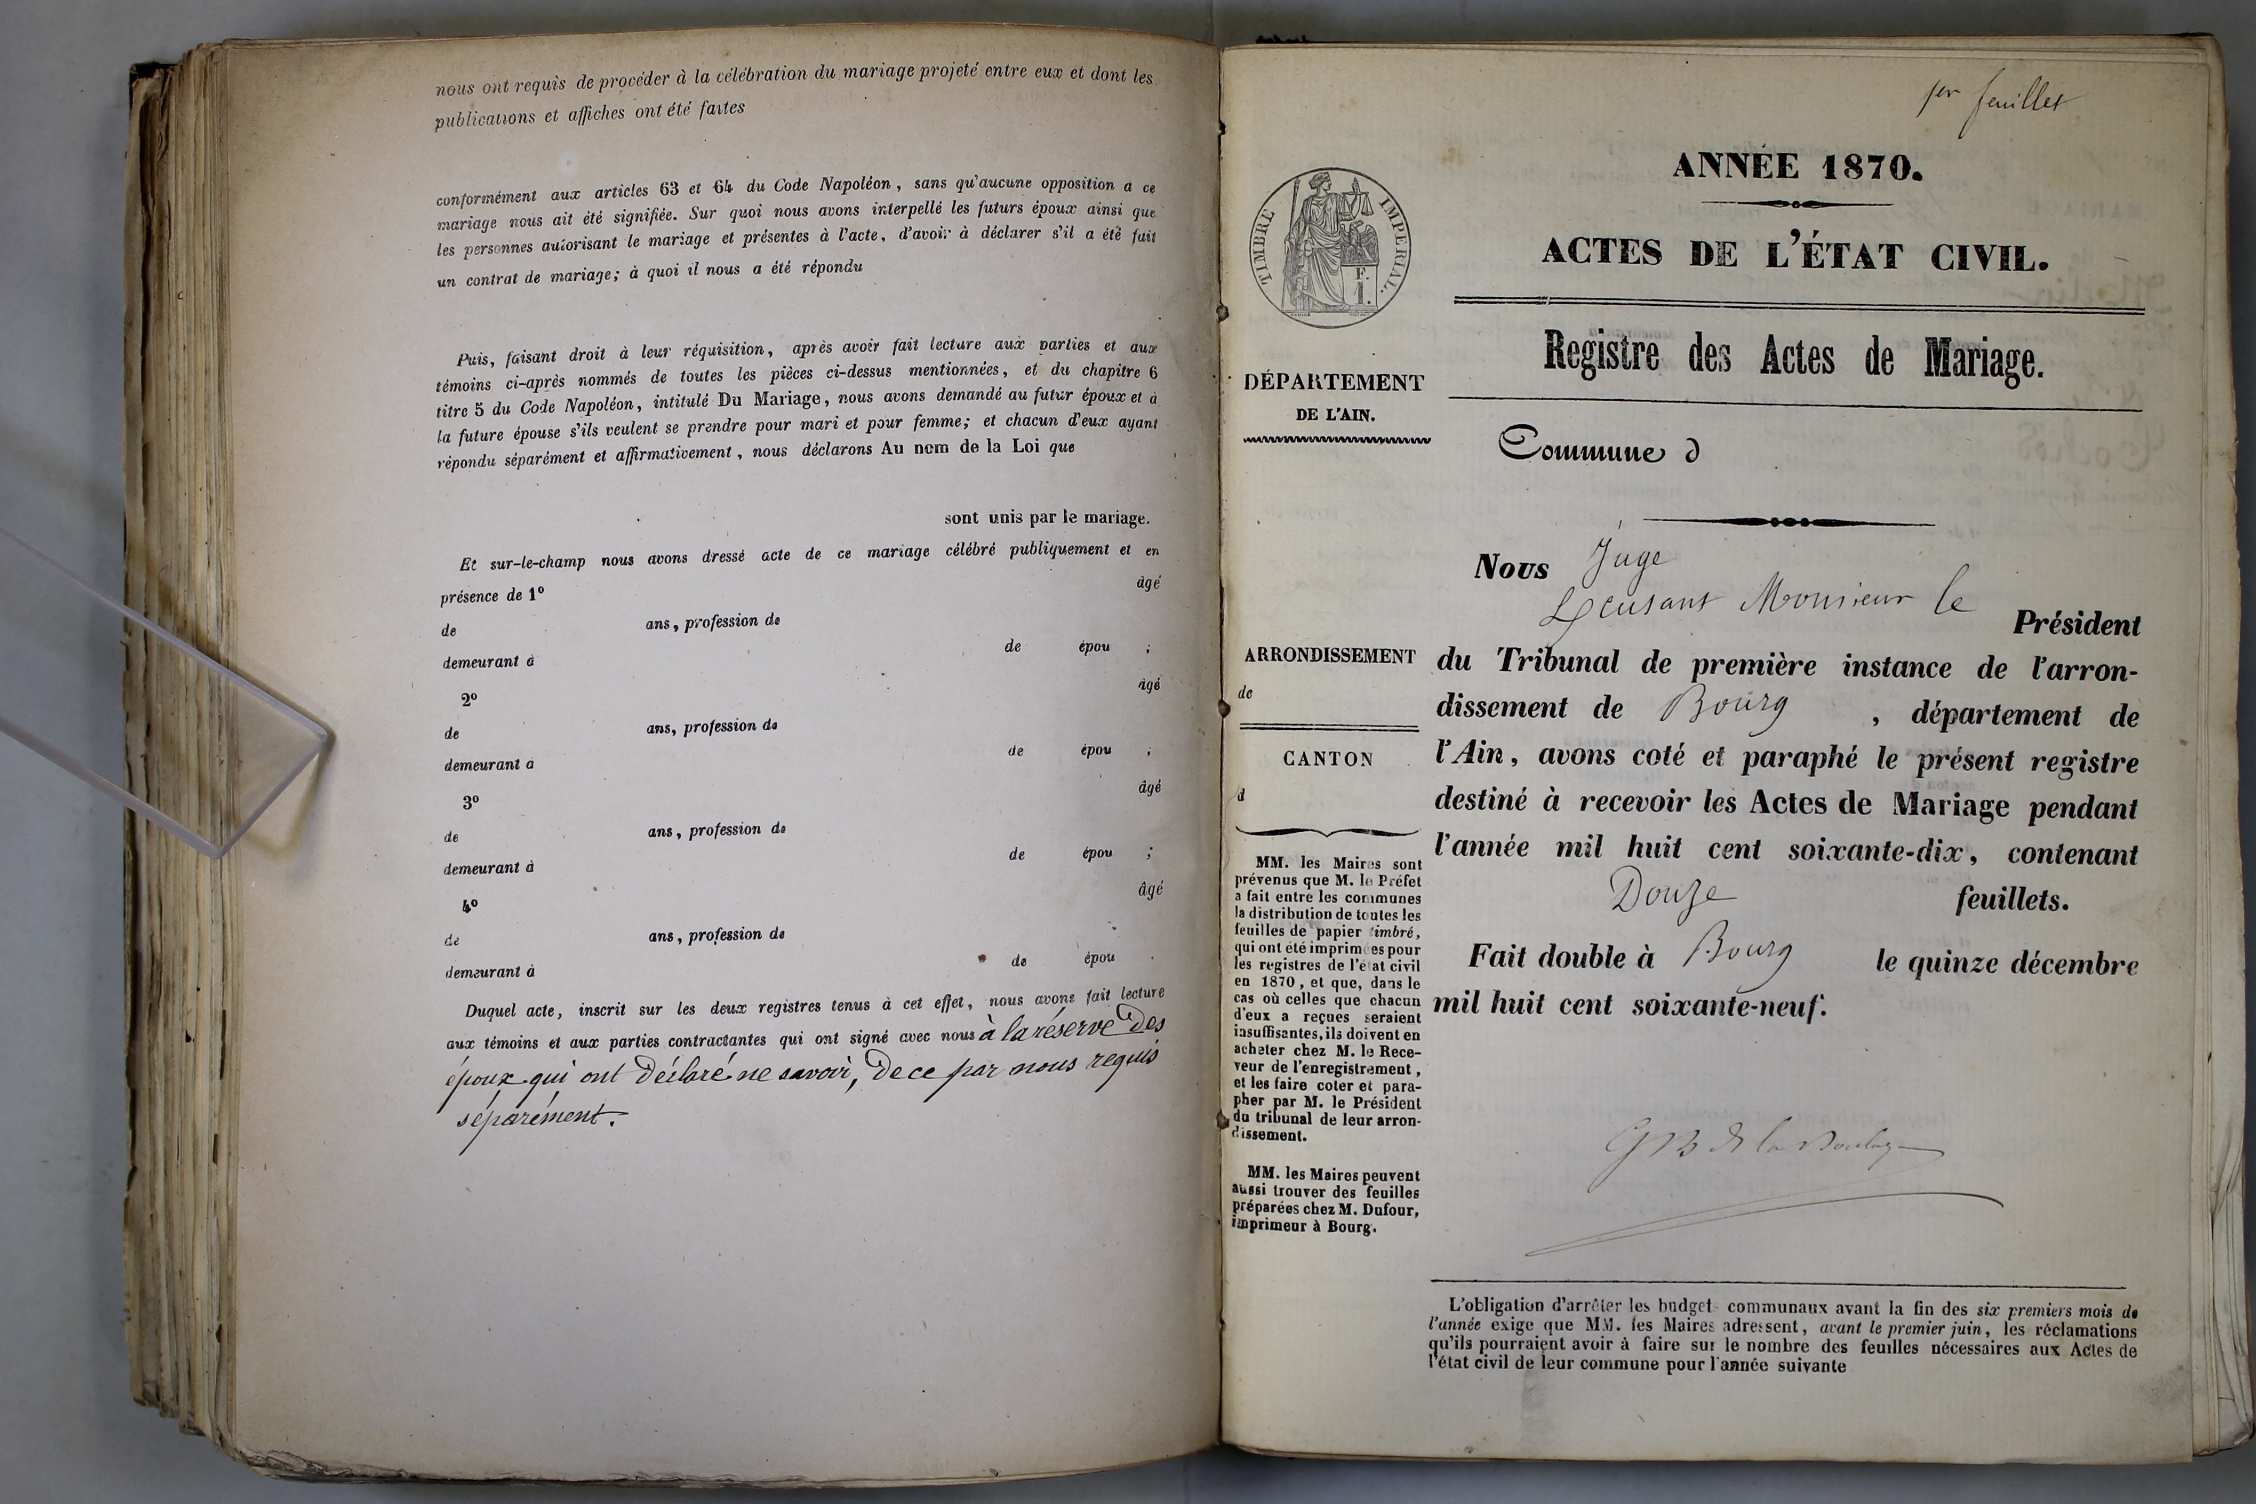 nous ont requis de procéder à la célébration du mariage projeté entre eux et dont les
publications et affiches ont été faites
conformément aux articles 63 et 64 du Code Napoléon, sans qu'aucune opposition à ce
mariage nous ait été signifiée. Sur quoi nous avons interpellé les futurs époux ainsi que
les personnes autorisant le mariage et présentes à l'acte, d'avoir à déclarer s'il a été fait
un contrat de mariage; à quoi il nous a été répondu
Puis, faisant droit à leur réquisition, après avoir fait lecture aux parties et aux
témoins ci-après nommés de toutes les pièces ci-dessus mentionnées, et du chapitre 6
titre 5 du Code Napoléon, intitulé Du Mariage, nous avons demandé au futur époux et à
la future épouse s'ils veulent se prendre pour mari et pour femme; et chacun d'eux ayant
répondu séparément et affirmativement, nous déclarons Au nom de la Loi que
sont unis par le mariage.
Et sur-le-champ nous avons dressé acte de ce mariage célébré publiquement et en
présence de 1º âgé
de ans, profession de
demeurant à de épou ;
2º âgé
de ans, profession de
demeurant à de épou ;
3º âgé
de ans, profession de
demeurant à de épou ;
4º âgé
de ans, profession de
demeurant à de épou .
Duquel acte, inscrit sur les deux registres tenus à cet effet, nous avons fait lecture
aux témoins et aux parties contractantes qui ont signé avec nous à la réserve des
époux qui ont déclaré ne savoir, de ce par nous requis
séparément.
1er feuillet
ANNÉE 1870.
ACTES DE L'ÉTAT CIVIL.
Registre des Actes de Mariage.
Commune d
TIMBRE IMPERIAL.
F.
1.
DÉPARTEMENT
DE L'AIN.
ARRONDISSEMENT
de
CANTON
d
MM. les Maires sont
prévenus que M. le Préfet
a fait entre les communes
la distribution de toutes les
feuilles de papier timbré,
qui ont été imprimées pour
les registres de l'état civil
en 1870, et que, dans le
cas où celles que chacun
d'eux a reçues seraient
insuffisantes, ils doivent en
acheter chez M. le Rece-
veur de l'enregistrement,
et les faire coter et para-
pher par M. le Président
du tribunal de leur arron-
dissement.
MM. les Maires peuvent
aussi trouver des feuilles
préparées chez M. Dufour,
imprimeur à Bourg.
Nous Juge
Monsieur le Président
du Tribunal de première instance de l'arron-
dissement de Bourg , département de
l'Ain, avons coté et paraphé le présent registre
destiné à recevoir les Actes de Mariage pendant
l'année mil huit cent soixante-dix, contenant
Douze feuillets.
Fait double à Bourg le quinze décembre
mil huit cent soixante-neuf.
L'obligation d'arrêter les budgets communaux avant la fin des six premiers mois de
l'année exige que MM. les Maires adressent, avant le premier juin, les réclamations
qu'ils pourraient avoir à faire sur le nombre des feuilles nécessaires aux Actes de
l'état civil de leur commune pour l'année suivante